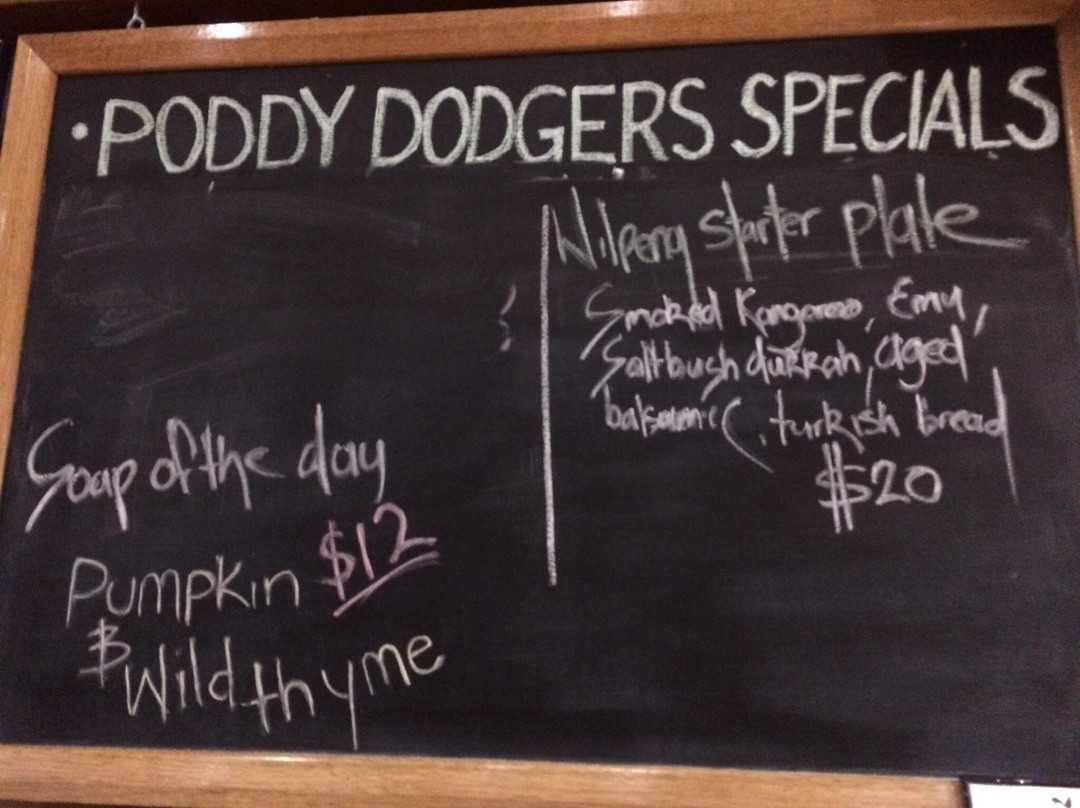 • PODDY DODGERS SPECIALS
Soap of the day
$12
Pumpkin
&
Wild thyme
Wilpena starter plate
Smoked Kangaroo, Emu,
Saltbush dukkah, aged
balsamic, turkish bread
$20